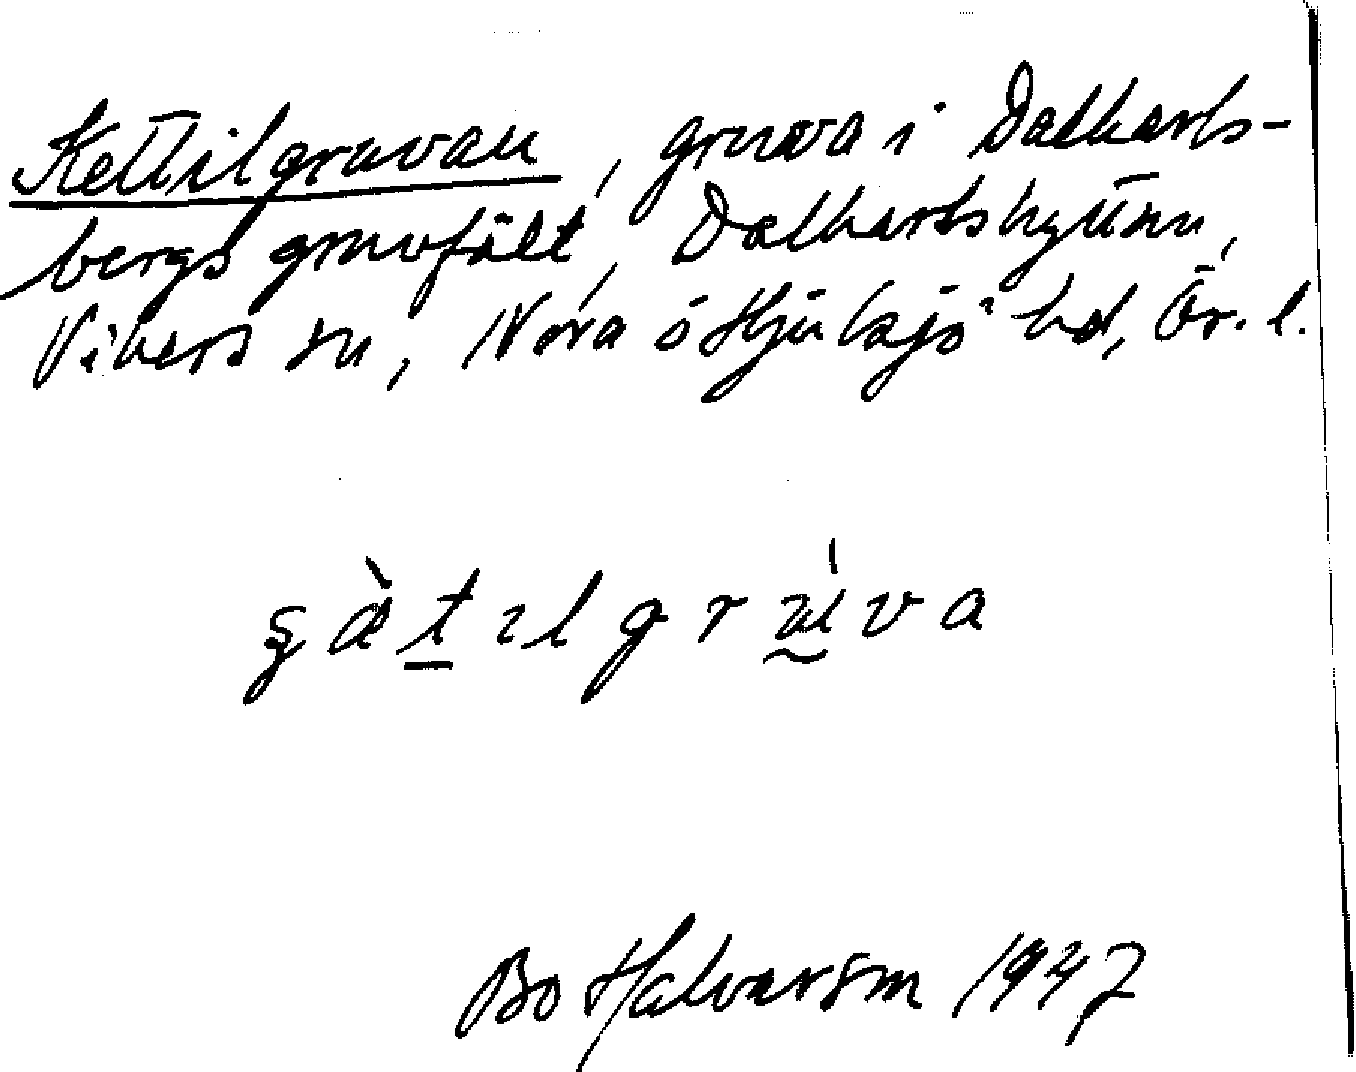 Kettilgruvan, gruva i Dalkarls-
bergs gruvfält, Dalkarlshyttan,
Vikers sn, Nora o Hjulsjö hd, Ör. l.
Bo Halvarson 1947